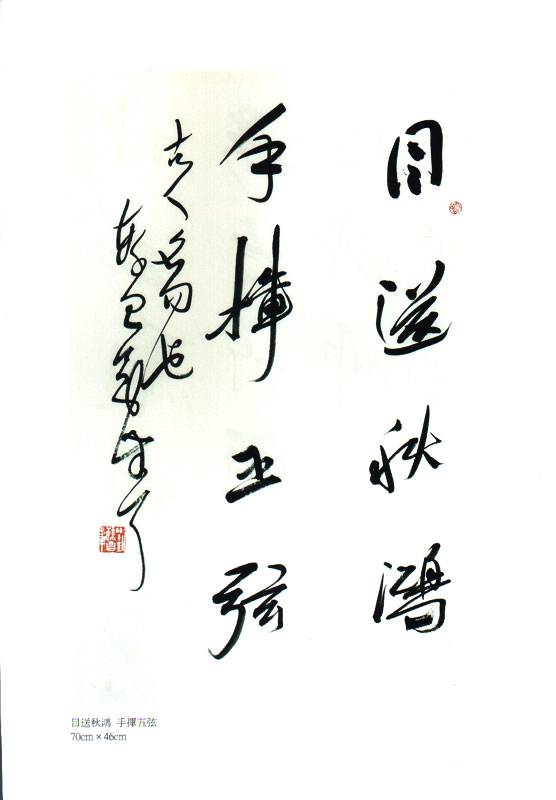 目送秋鴻
手揮五弦
古人名句也
目送秋鴻 手揮五弦
70cm×46cm